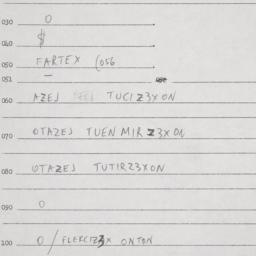 030 0
040 $
050 FARTEX (056
051 —
060 AZEJ TUCIZ3XON
070 OTAZEJ TUEN MIR Z3XON
080 OTAZEJ TUTIRZ3XON
090 0
100 0/FLERCIZ3X ONTON